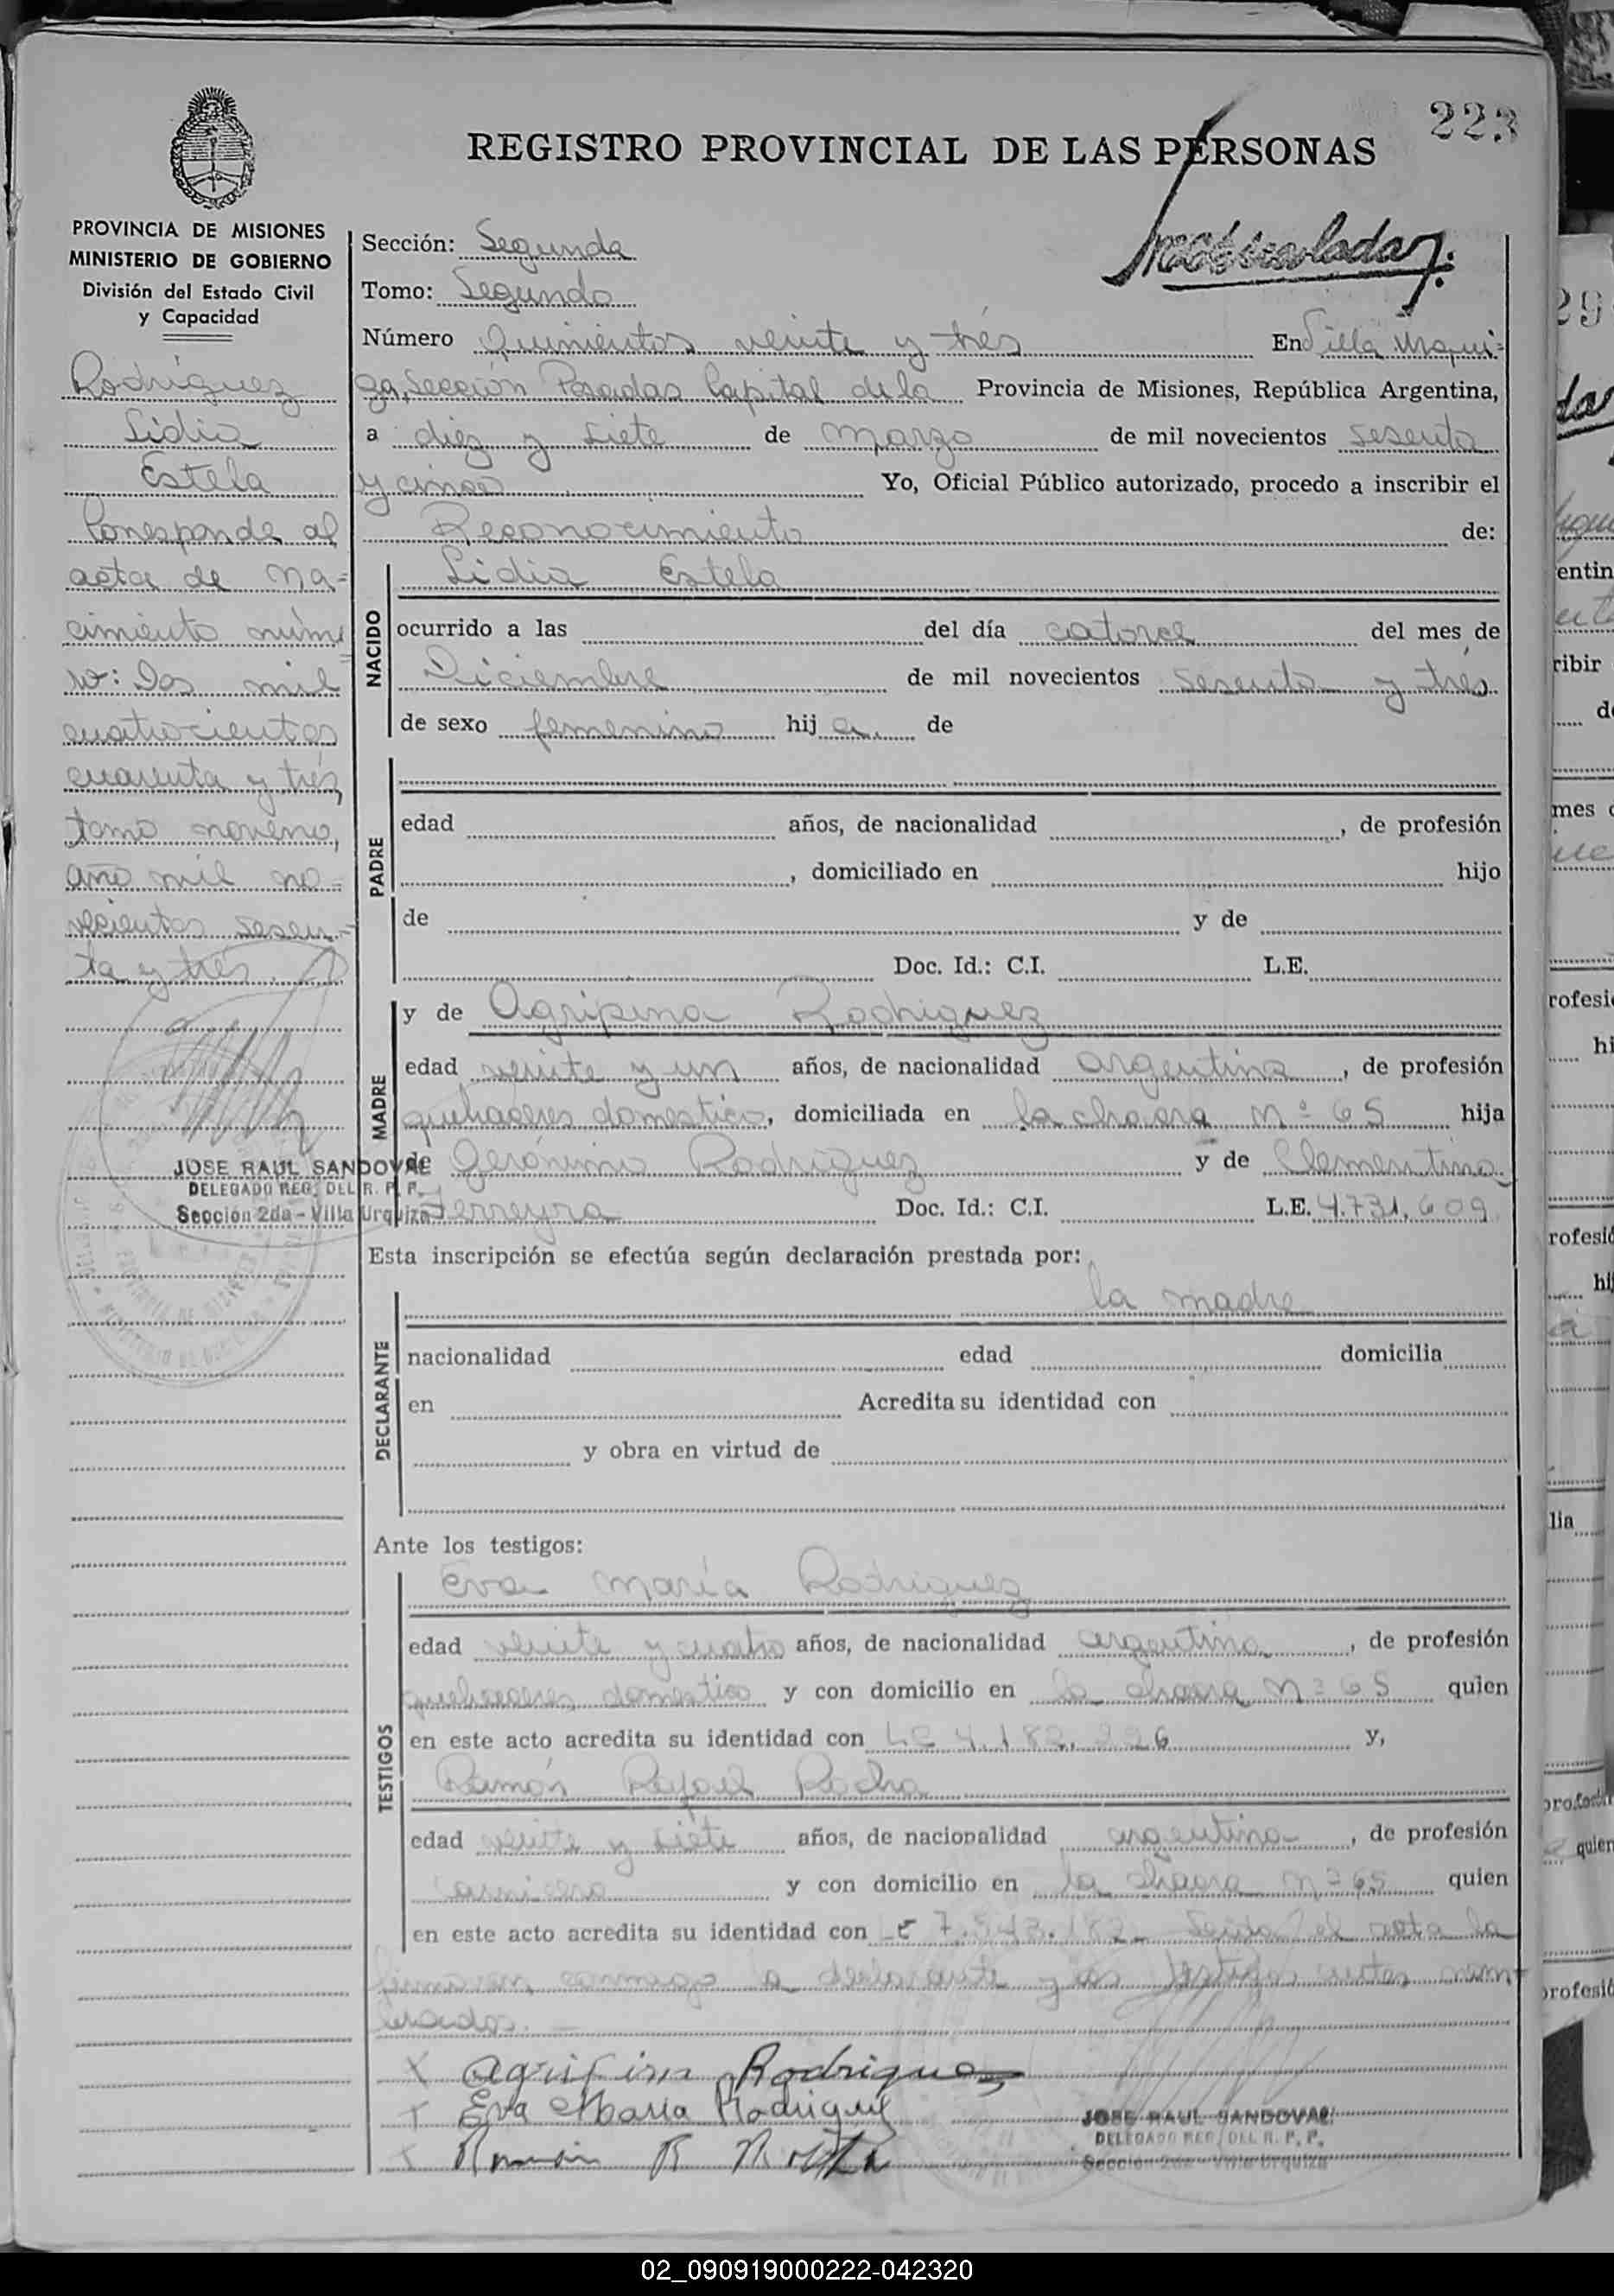 223
REGISTRO PROVINCIAL DE LAS PERSONAS
Matriculada
PROVINCIA DE MISIONES
MINISTERIO DE GOBIERNO
División del Estado Civil
y Capacidad
Rodríguez
Lidia
Estela
Corresponde al
acta de na=
cimiento núme
ro: Dos mil
cuatrocientos
cuarenta y trés
tomo noveno,
año mil no=
vecientos sesen=
ta y trés.
JOSE RAUL SANDOVAL
DELEGADO REG. DEL R. P. P.
Sección 2da - Villa Urquiza
Sección: Segunda
Tomo: Segundo
Número Quinientos veinte y trés En Villa Urqui=
za, Sección Posadas Capital de la Provincia de Misiones, República Argentina,
a diez y siete de marzo de mil novecientos sesenta
y cinco Yo, Oficial Público autorizado, procedo a inscribir el
Reconocimiento de:
NACIDO
Lidia Estela
ocurrido a las del día catorce del mes de
Diciembre de mil novecientos sesenta y trés
de sexo femenino hij a. de
PADRE
edad años, de nacionalidad , de profesión
, domiciliado en hijo
de y de
Doc. Id.: C.I. L.E.
MADRE
y de Agripina Rodriguez
edad veinte y un años, de nacionalidad argentina , de profesión
quehaceres domestico, domiciliada en la chacra Nº 65 hija
de Gerónimo Rodríguez y de Clementina
Ferreyra Doc. Id.: C.I. L.E. 4.731.609
Esta inscripción se efectúa según declaración prestada por:
DECLARANTE
la madre
nacionalidad edad domicilia
en Acredita su identidad con
y obra en virtud de
Ante los testigos:
TESTIGOS
Eva María Rodriguez
edad veinte y cuatro años, de nacionalidad argentina , de profesión
quehaceres domestico y con domicilio en la chacra Nº 65 quien
en este acto acredita su identidad con LC 4.182.226 y,
Ramón Rafael Rocha
edad veinte y siete años, de nacionalidad argentina , de profesión
carnicero y con domicilio en la chacra Nº 65 quien
en este acto acredita su identidad con LE 7.543.182 Leida el acta la
firmaron conmigo la declarante y los testigos antes nom=
brados.
x Agripina Rodriguez
x Eva Maria Rodriguez
x Ramón R
JOSE RAUL SANDOVAL
DELEGADO REG. DEL R. P. P.
Sección 2da - Villa Urquiza
02_090919000222-042320